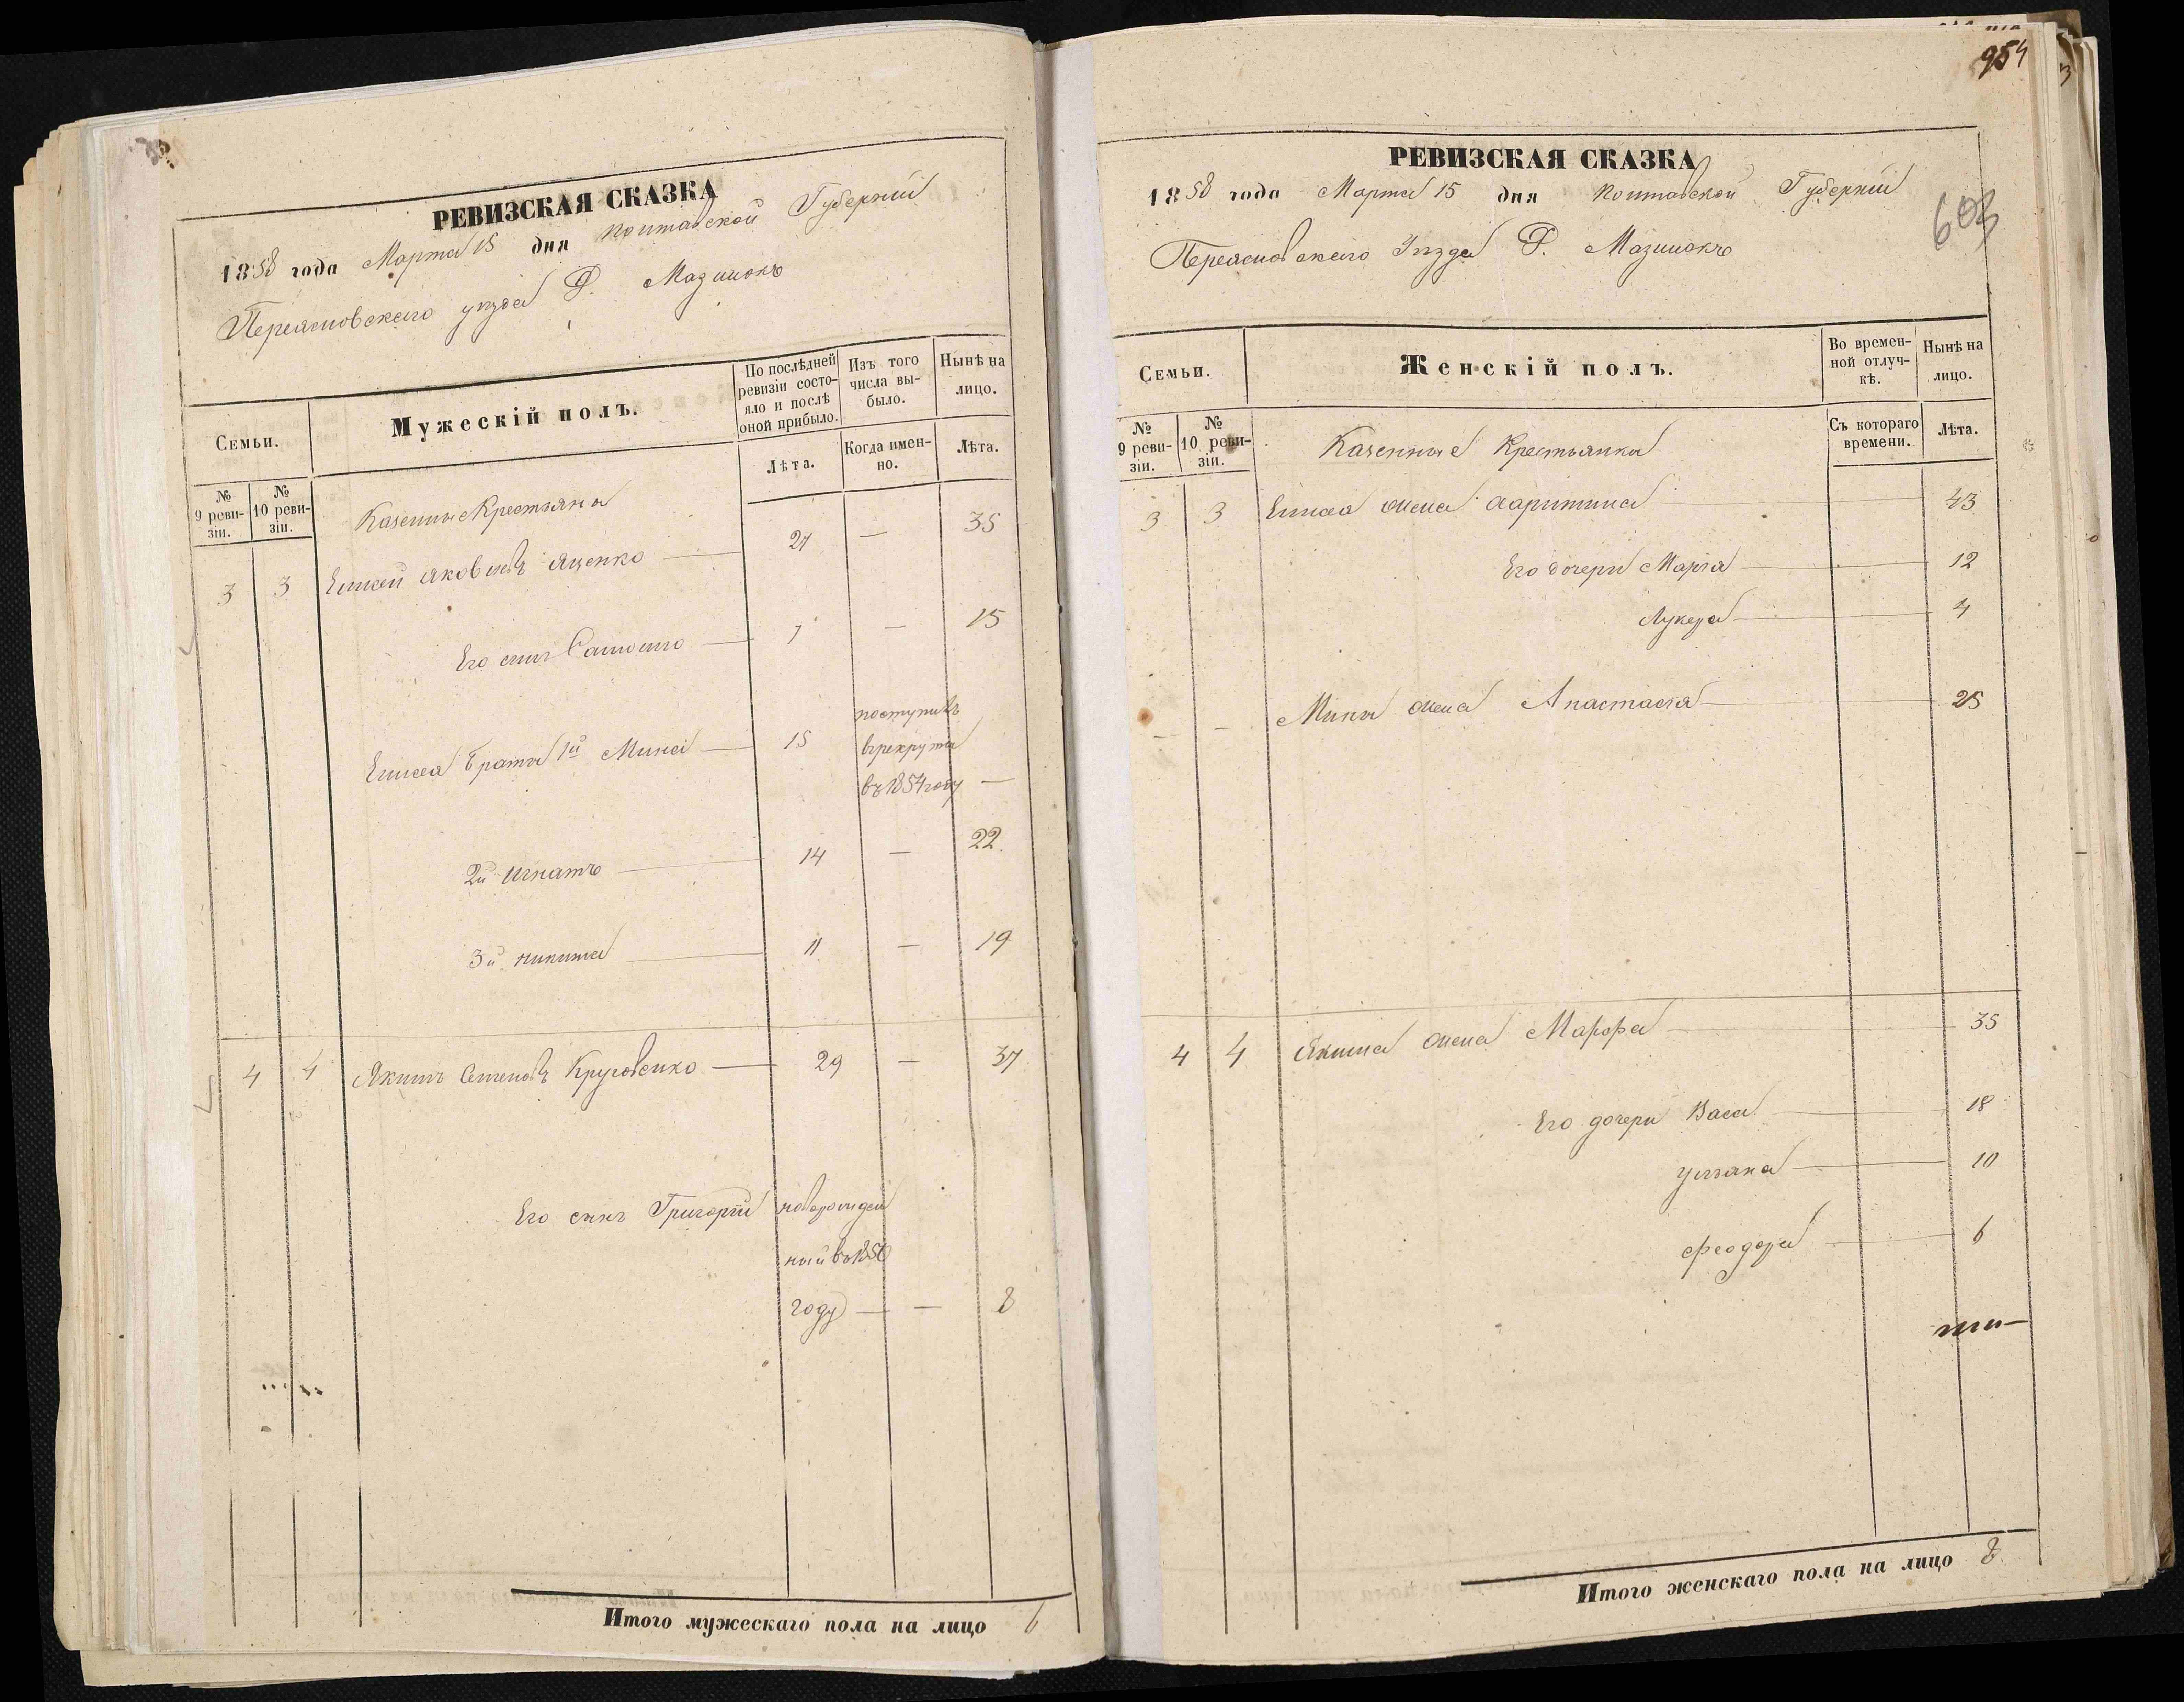 РЕВИЗСКАЯ СКАЗКА
1858 года Марта 15 дня Полтавской Губерніи
Переясловскаго уѣзда Д. Мазинокъ
Семьи.
Мужескій полъ.
По послѣдней ревизіи состо-
яло и послѣ оной прибыло.
Изъ того числа вы-
было.
Нынѣ на лицо.
№ 9 реви-
зіи.
№ 10 реви-
зіи.
Лѣта.
Когда имен-
но.
Лѣта.
Казенные Крестьяны
3 3 Елисей Яковлевъ Яценко 27 — 35
Его сынъ 7 — 15
Елисея братья 1й Мина 15 поступилъ
врекруты
въ 1854 году —
2й Игнатъ 14 — 22.
3й Никита 11 — 19
4 4 Якимъ Семеновъ Круговенко 29 — 37
Его сынъ Григорій новорожден
ный въ 1850
году — — 8
Итого мужескаго пола на лицо 6
954
РЕВИЗСКАЯ СКАЗКА
1858 года Марта 15 дня Полтавской Губерніи
603
Переясловскаго Уѣзда Д. Мазинокъ
Семьи.
Женскій полъ.
Во времен-
ной отлуч-
кѣ.
Нынѣ на лицо.
№ 9 реви-
зіи.
№ 10 реви-
зіи.
Казенные Крестьянки
Съ котораго времени.
Лѣта.
3 3 Елисея жена Харитина 43
Его дочери Марія 12
Лукерья 4
— — Мины жена Анастасія 25
4 4 Якима жена Марфа 35
Его дочери Васа 18
Уліяна 10
Феодора 6
Итого женскаго пола на лицо 8